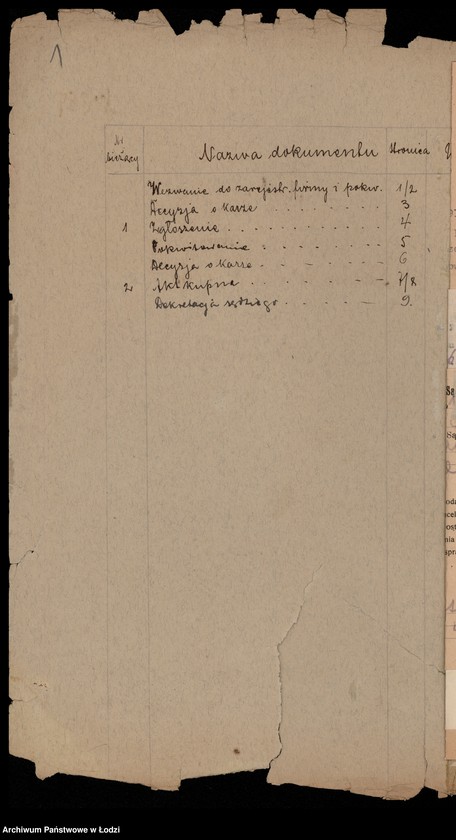 1
Nr bieżący Nazwa dokumentu Stronica
Wezwanie do zarejestr. firmy i pokw. 1/2
Decyzja o karze 3
1 Zgłoszenie 4
Pokwitowanie 5
Decyzja o karze 6
2 Akt kupna 7/8
Dekretacja sędziego 9.
Archiwum Państwowe w Łodzi